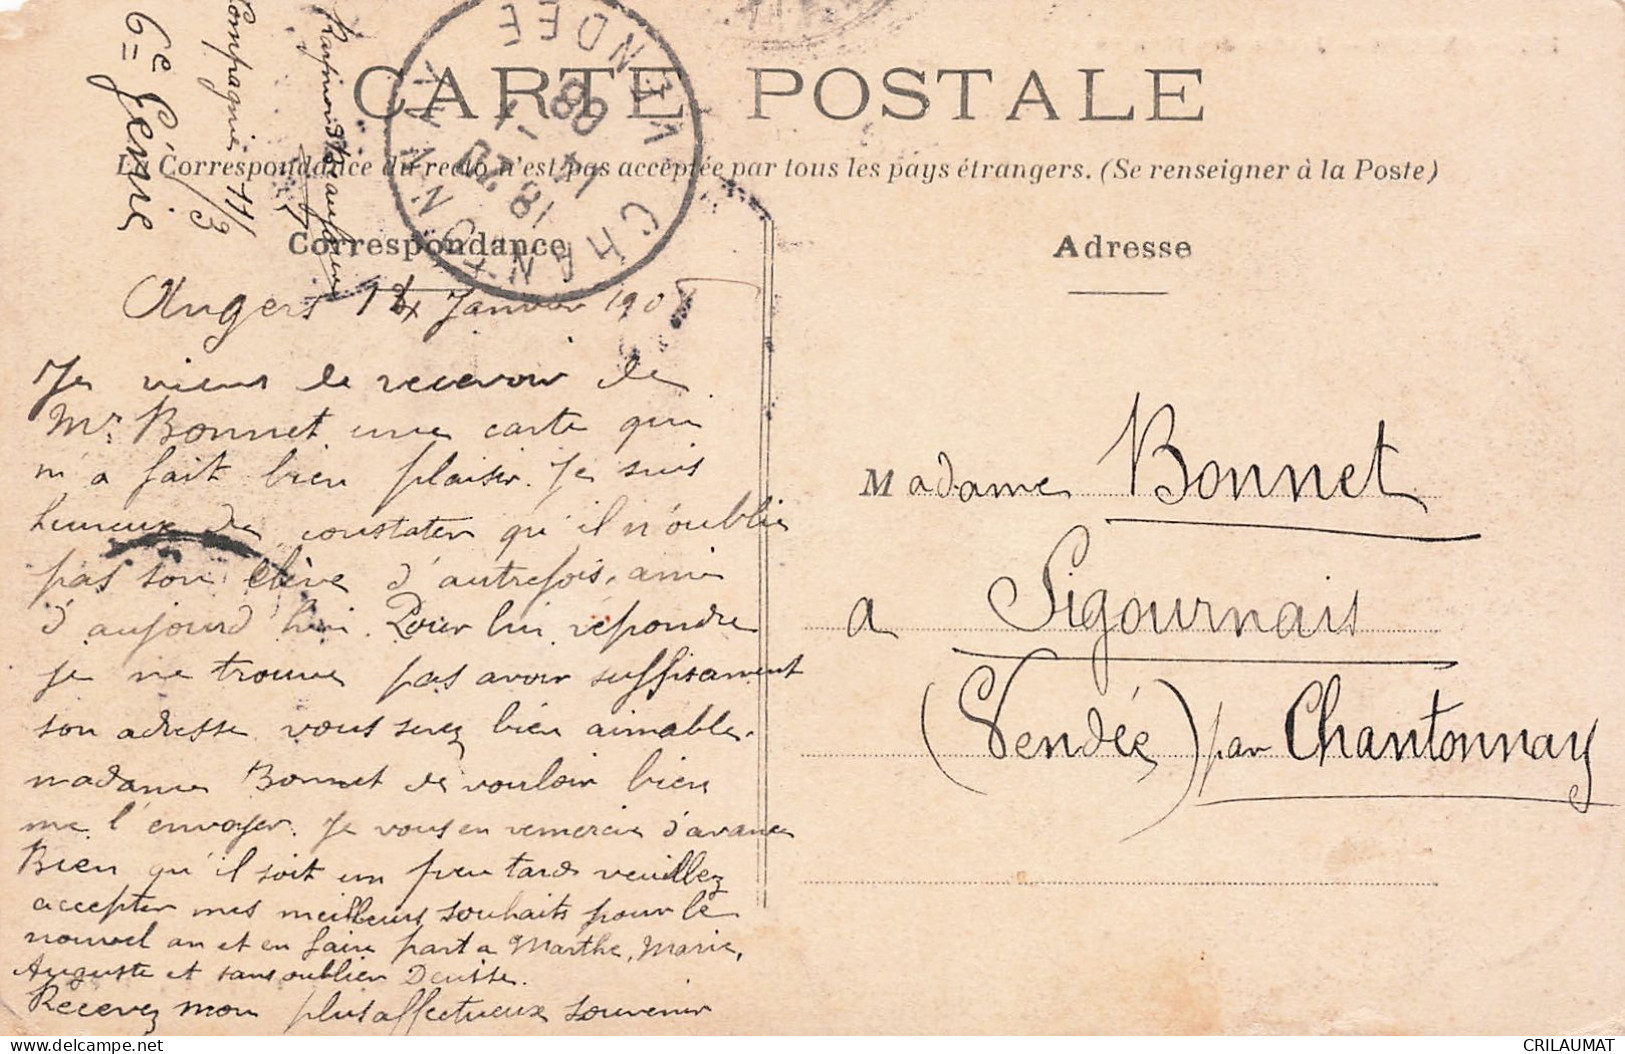 CARTE POSTALE
La Correspondance du recto n'est pas acceptée par tous les pays étrangers. (Se renseigner à la Poste)
Correspondance
Adresse
CHANTONNAY
VENDÉE
6e Génie
Compagnie 11/3
Angers 12 Janvier 1908
Je viens de recevoir de
Mr Bonnet une carte qui
m'a fait bien plaisir. Je suis
heureux de constater qu'il n'oublie
pas son élève d'autrefois, ami
d'aujourd'hui. Pour lui répondre
je ne trouve pas avoir suffisament
son adresse vous serez bien aimable
madame Bonnet de vouloir bien
me l'envoyer. Je vous en remercie d'avance
Bien qu'il soit un peu tard veuillez
accepter mes meilleurs souhaits pour le
nouvel an et en faire part a Marthe, Marie,
Auguste et sans oublier Denise.
Recevez mon plus affectueux souvenir
Madame Bonnet
a Sigournais
(Vendée) par Chantonnay
delcampe.net
CRILAUMAT